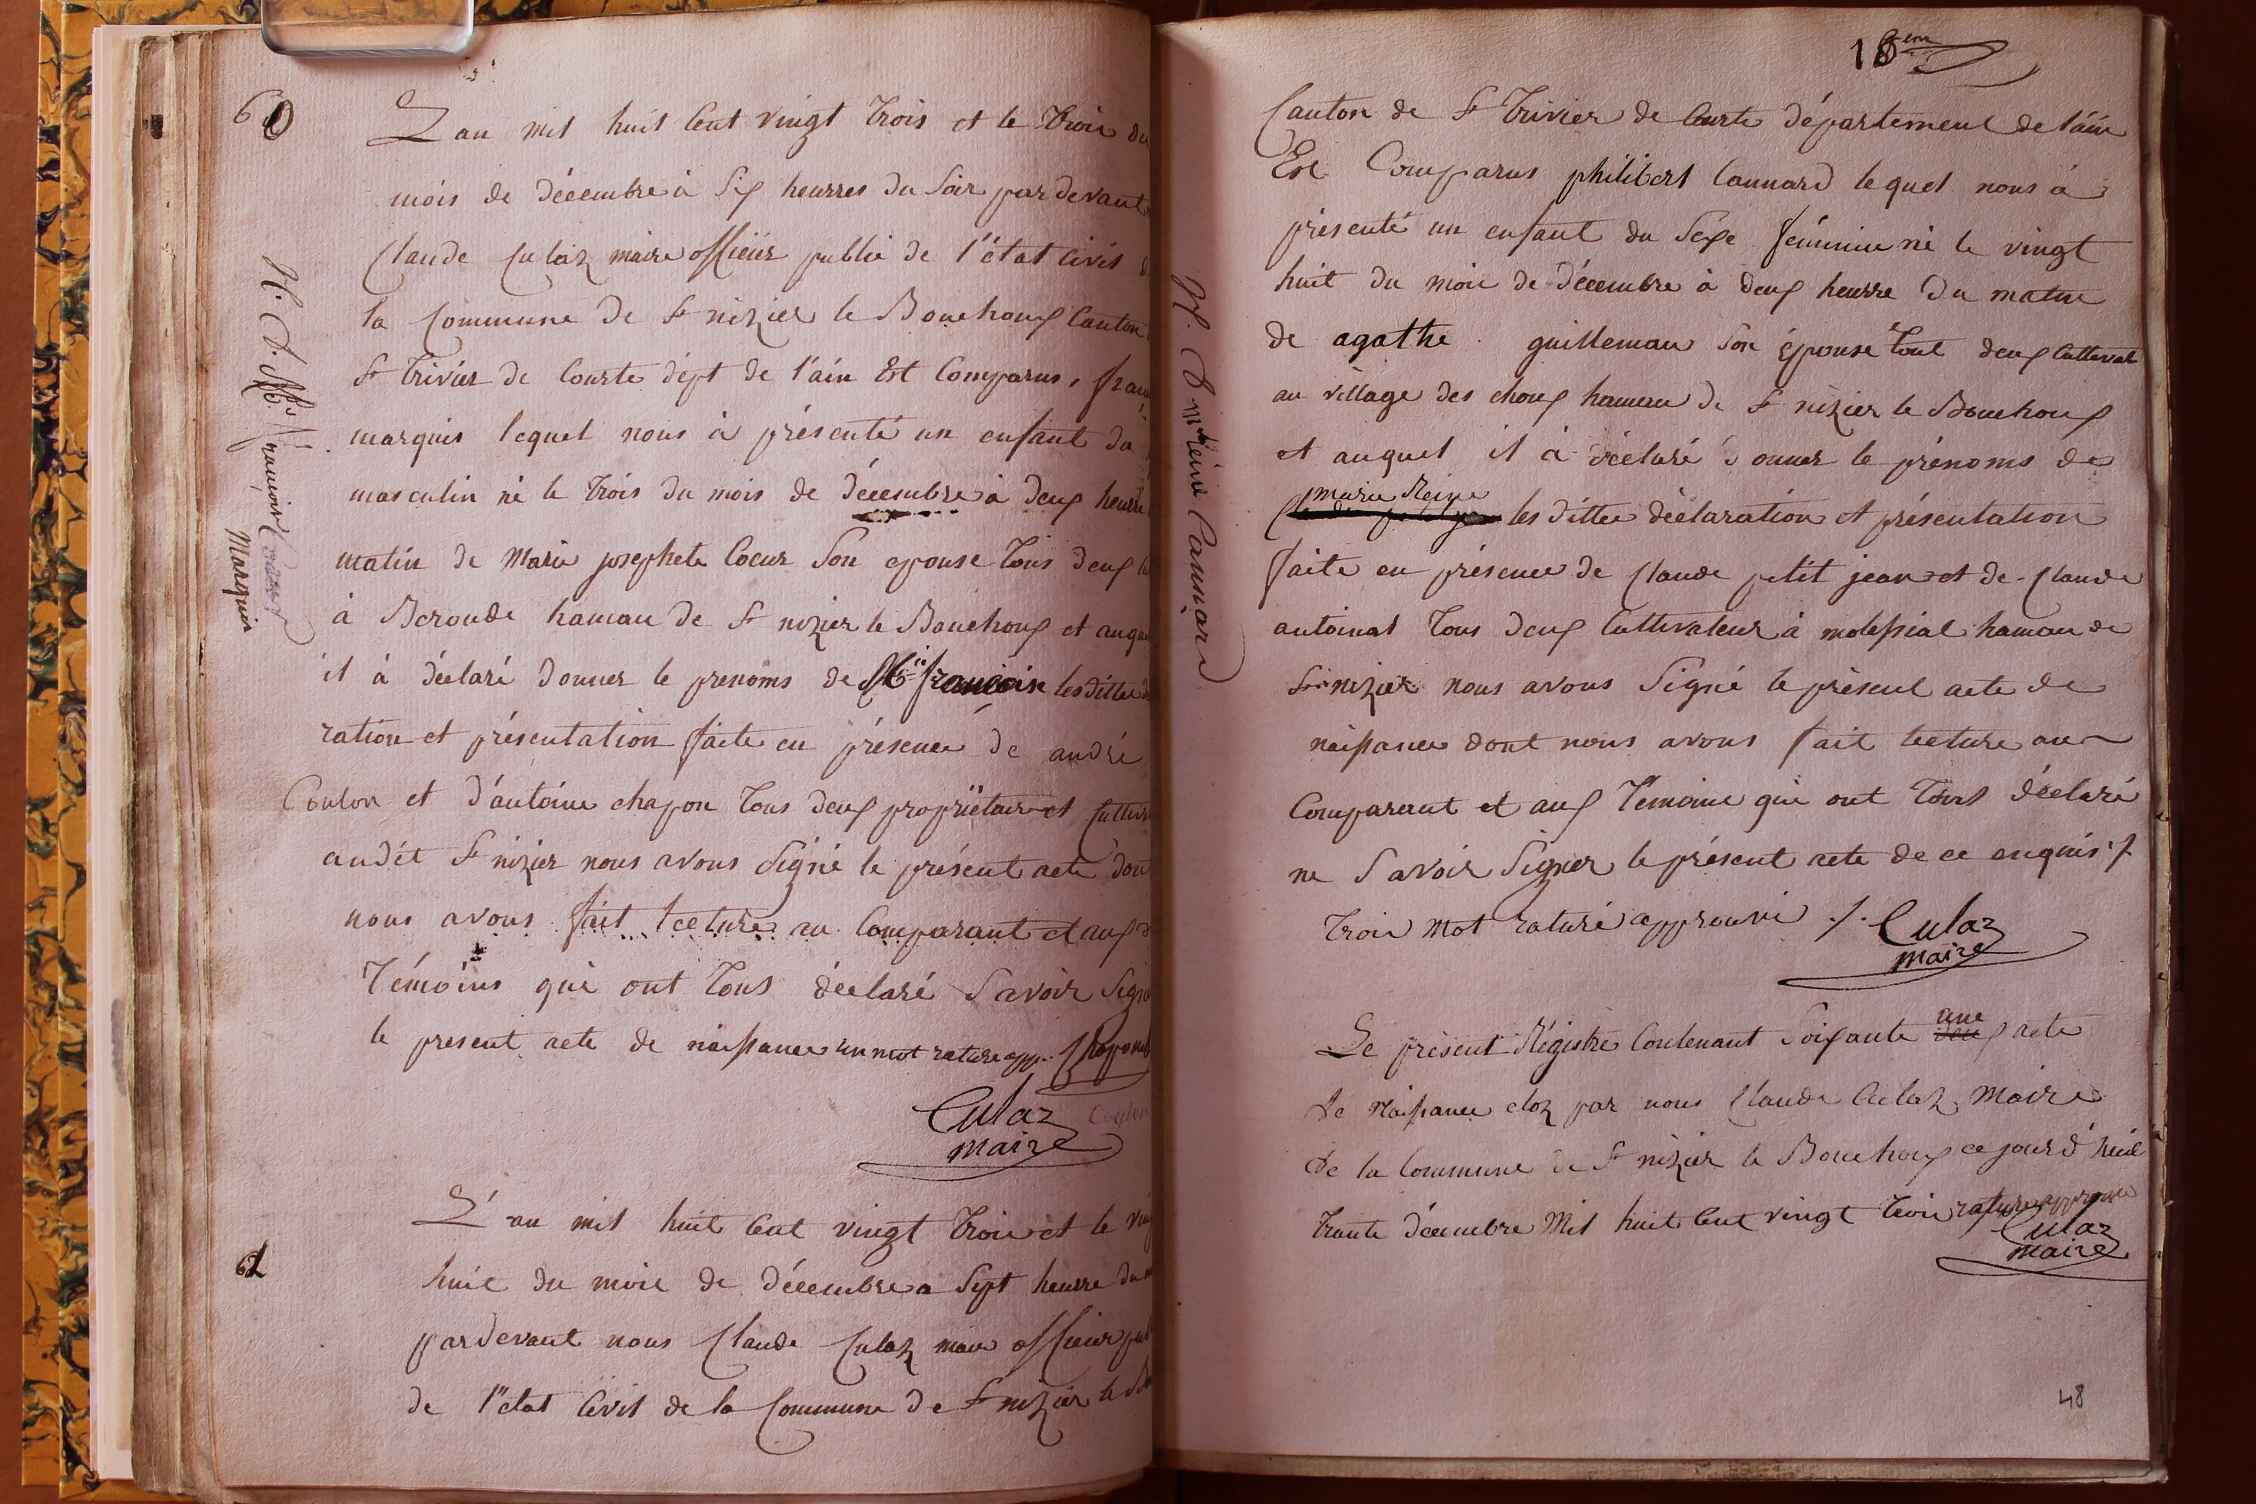 60
L'an mil huit Cent vingt trois et le trois du
mois de décembre à Six heurres du Soir pardevant
Claude Culaz maire officiér public de l'état Civil
la Commune de St nizier le Bouchoux Canton
St trivier de Courte dépt de l'ain Est Comparus,
marquis lequel nous à présenté un enfant du
masculin né le trois du mois de décembre à deux heurre
matin de Marie josephete Coeur Son epouse tous deux
à Beroude hamau de St nizier le Bouchoux et auquel
il à déclaré donner le prenoms de françois les dittes
ration et présentation faite en présence de andré
Coulon et d'antoine chapon tous deux propriétaire et Cultiv
audit St nizier nous avons Signé le présent acte don
nous avons fait lecture au Comparant et aux
Témoins qui ont tous déclaré Savoir Signé
le present acte de naissance un mot raturé app. Chapon
Culaz Coulon
maire
N. D. françois
Marquis
61
L'an mil huit Cent vingt trois et le vin
huit du mois de décembre a Sept heurre du
pardevant nous Claude Culaz maire officier pub
de l'état Civil de la Commune de St nizier le Bo
18em
Canton de St trivier de Courte département de l'ain
Est Comparus philibert Cannard lequel nous à
présenté un enfant du Sexe féminin né le vingt
huit du mois de décembre à deux heurre du matin
de agathe guilleman Son épouse tout deux Cultivat
au village des choux hameau de St nizier le Bouchoux
et auquel il à déclaré donner le prénoms de
marie Reine
les dittes déclaration et présentation
faite en présence de Claude petit jean et de Claude
antoinat tous deux Cultivateur à molissiat hamau de
St nizier nous avons Signé le présent acte de
naissance dont nous avons fait lecture au
Comparant et aux Témoins qui ont tous déclaré
ne Savoir Signer le présent acte de ce enquis ./.
trois mot raturé approuvé ./. Culaz
maire
N. D. Cannard
une
Le présent Régistre Contenant Soixante deux acte
de Naissance cloz par nous Claude Culaz Maire
de la Commune de St nizier le Bouchoux ce jourd'huit
trente décembre Mil huit Cent vingt trois rature approuvé
Culaz
maire
48